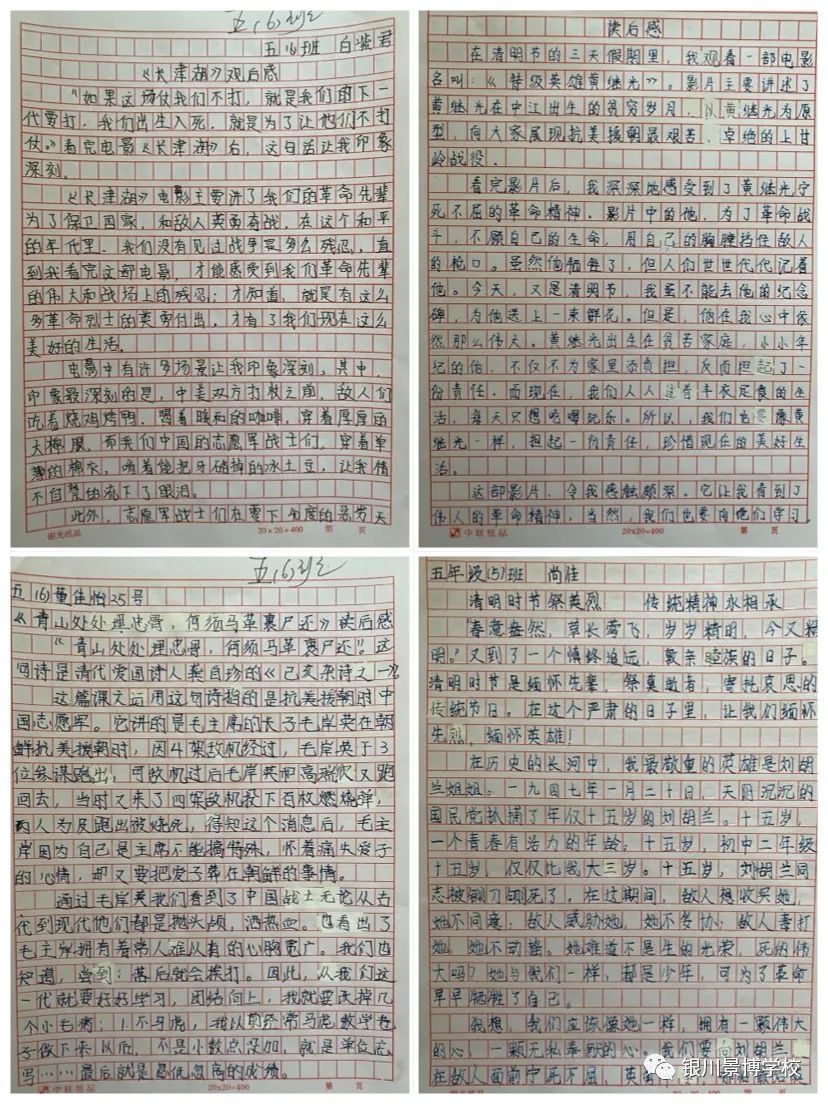 五(6)班
五(6)班 白紫君
《长津湖》观后感
“如果这场仗我们不打，就是我们的下一
代要打，我们出生入死，就是为了让他们不打
仗。”看完电影《长津湖》后，这句话让我印象
深刻。
《长津湖》电影主要讲了我们的革命先辈
为了保卫国家，和敌人英勇奋战，在这个和平
的年代里，我们没有见过战争有多么残忍，直
到我看完这部电影，才能感受到我们革命先辈
的伟大和战场上的残忍；才知道，就是有这么
多革命烈士的英勇付出，才有了我们现在这么
美好的生活。
电影中有许多场景让我印象深刻，其中，
印象最深刻的是，中美双方打仗之前，敌人们
吃着烧鸡烤鸭，喝着暖和的咖啡，穿着厚厚的
大棉服，而我们中国的志愿军战士们，穿着单
薄的棉衣，啃着能把牙硌掉的冰土豆，让我情
不自禁的流下了眼泪。
此外，志愿军战士们在零下40度的恶劣天
银光纸品 20×20=400 第 页
读后感
在清明节的三天假期里，我观看一部电影
名叫：《特级英雄黄继光》。影片主要讲述了
黄继光在中江出生的贫穷岁月，以黄继光为原
型，向大家展现抗美援朝最艰苦、卓绝的上甘
岭战役．
看完影片后，我深深地感受到了黄继光宁
死不屈的革命精神．影片中的他，为了革命战
斗，不顾自己的生命，用自己的胸膛挡住敌人
的枪口。虽然他牺牲了，但人们世世代代记着
他。今天，又是清明节，我虽不能去他的纪念
碑，为他送上一束鲜花。但是，他在我心中依
然那么伟大。黄继光出生在贫苦家庭，小小年
纪的他，不仅不为家里添负担，反而担起了一
份责任．而现在，我们人人过着丰衣足食的生
活，每天只想吃喝玩乐。所以，我们也要像黄
继光一样，担起一份责任，珍惜现在的美好生
活。
这部影片，令我感触颇深。它让我看到了
伟人的革命精神，当然，我们也要向他们学习．
中联纸品 20×20=400 第 页
五(6)班
五(6)董佳怡25号
《青山处处埋忠骨，何须马革裹尸还》读后感
“青山处处埋忠骨，何须马革裹尸还”。这
句诗是清代爱国诗人龚自珍的《己亥杂诗之一》。
这篇课文运用这句诗指的是抗美援朝时中
国志愿军。它讲的是毛主席的长子毛岸英在朝
鲜抗美援朝时，因4架敌机经过，毛岸英于3
位参谋跑出，可敌机过后毛岸英和高瑞欣又跑
回去，当时又来了四架敌机投下百枚燃烧弹，
两人为及跑出被烧死，得知这个消息后，毛主
岸因为自己是主席不能搞特殊，怀着痛失爱子
的心情，却又要把爱子葬在朝鲜的事情。
通过毛岸英我们看到了中国战士无论从古
代到现代他们都是抛头颅，洒热血。也看出了
毛主岸拥有着常人难从有的心胸宽广。我们也
知道，尝到：落后就会挨打。因此，从我们这
一代就要好好学习，团结向上，我就要灭掉几
个小毛病：1.不马虎，我以前经常马虎数学卷
子做下来以后，不是小数点没加，就是单位忘
写……最后就是忽低忽高的成绩。
中联纸品 20×20=400 第 页
五年级(5)班 尚佳
清明时节祭英烈 传统精神永相承
“春意盎然，草长莺飞，岁岁清明，今又清
明。”又到了一个慎终追远，敦亲睦族的日子。
清明时节是缅怀先辈，祭奠逝者，寄托哀思的
传统节日。在这个严肃的日子里，让我们缅怀
先烈，缅怀英雄！
在历史的长河中，我最敬重的英雄是刘胡
兰姐姐。一九四七年一月二十日，天阴沉沉的
国民党抓捕了年仅十五岁的刘胡兰。十五岁，
一个青春有活力的年龄；十五岁，初中二年级
十五岁，仅仅比我大三岁。十五岁，刘胡兰同
志被铡刀铡死了。在过期间，敌人想收买她，
她不同意；敌人威胁她，她不妥协；敌人毒打
她，她不动摇。她难道不是生的光荣，死的伟
大吗？她与我们一样，都是少年，可为了革命
早早牺牲了自己。
我想，我们应该像她一样，拥有一颗伟大
的心，一颗无私奉献的心。我们要向刘胡兰
在敌人面前宁死不屈，英勇
银川景博学校